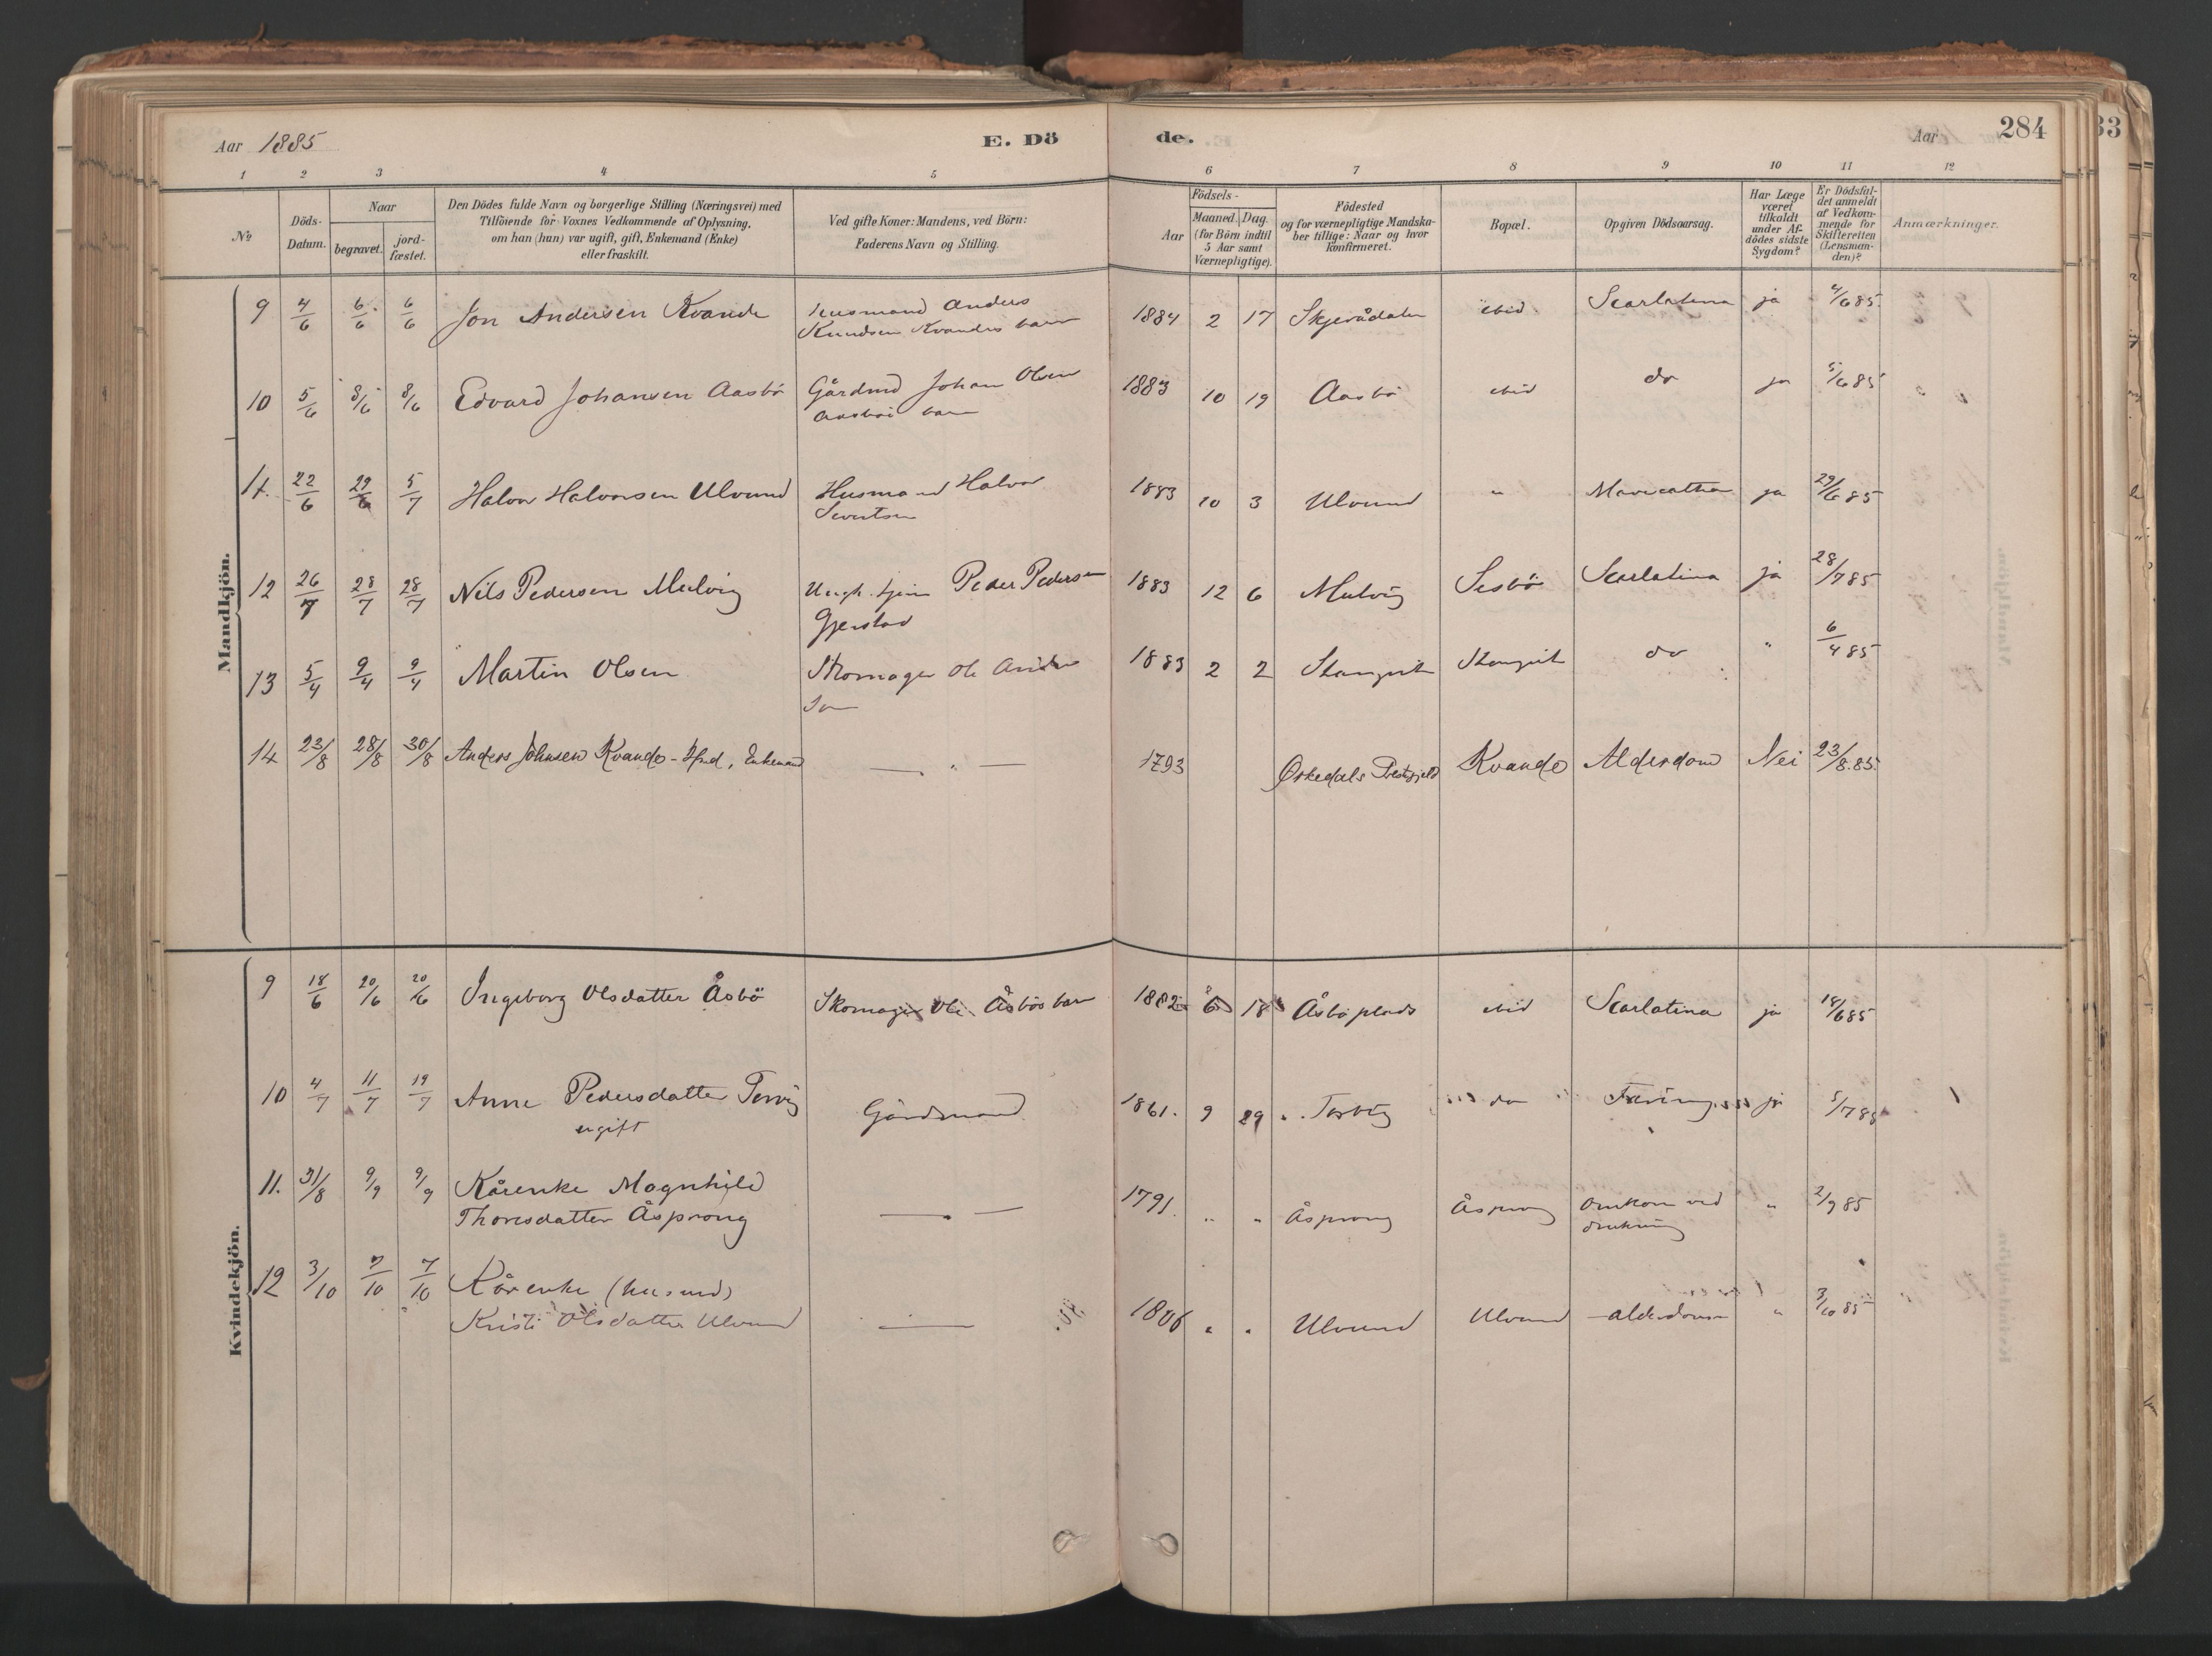 Aar 1885 E. Dö de. Aar 284
33
1 2 3 4 5 6 7 8 9 10 11 12
No Döds-Datum. Naar begravet. jord-fæstet. Den Dödes fulde Navn og borgerlige Stilling (Næringsvei) med Tilföiende for Voxnes Vedkommende af Oplysning, om han (hun) var ugift, gift, Enkemand (Enke) eller fraskilt. Ved gifte Koner: Mandens, ved Börn: Faderens Navn og Stilling. Aar Födsels- Maaned. Dag. (for Börn indtil 5 Aar samt Værnepligtige). Födested og for værnepligtige Mandskaber tillige: Naar og hvor konfirmeret. Bopæl. Opgiven Dödsaarsag. Har Læge været tilkaldt under Afdödes sidste Sygdom? Er Dödsfaldet anmeldt af Vedkommende for Skifteretten (Lensmanden)? Anmærkninger.
Mandkjön.
9 4/6 6/6 6/6 Jon Andersen Kvande Husmand Anders Knudsen Kvandes barn 1884 2 17 Skjerådalen ibid Scarlatina ja 4/6 85.
10 5/6 8/6 8/6 Edvard Johansen Aasbö Gårdmd Johan Olsen Aasböes barn 1883 10 19 Aasbö ibid do ja 5/6 85
11. 22/6 29/6 5/7 Halvor Halvorsen Ulvund Husmand Halvor Sivertsen 1883 10 3 Ulvund " ja 29/6 85
12 26/7 28/7 28/7 Nils Pedersen Mulvig Peder Pedersen Gjerstad 1883 12 6 Mulvig Sesbö Scarlatina ja 28/7 85
13 5/4 9/4 9/4 Martin Olsen Skomager Ole Anders Søn 1883 2 2 Stangvik Stangvik do " 6/4 85
14 23/8 28/8 30/8 Anders Johnsen Kvande - Hmd, Enkemand — " — 1793 Orkedals Prestegjeld Kvande Alderdom Nei 23/8.85.
Kvindekjön.
9 18/6 20/6 20/6 Ingeborg Olsdatter Åsbö Skomager Ole Åsbös barn 1882 6 18 Åsböplads ibid Scarlatina ja 18/6 85
10 4/7 11/7 19/7 Anne Pedersdatter Torvig
ugift Gårdmand 1861. 9 29 Torvig do Tæring ja 5/7 85
11. 31/8 9/9 9/9 Kårenke Magnhild
Thoresdatter Åsprong — — 1791. " " Åsprong Åsprong Omkom ved drukning " 2/9 85
12 3/10 7/10 7/10 Kårenke (husmd)
Kristi Olsdatter Ulvund — 1806 " " Ulvund Ulvund alderdom " 3/10 85